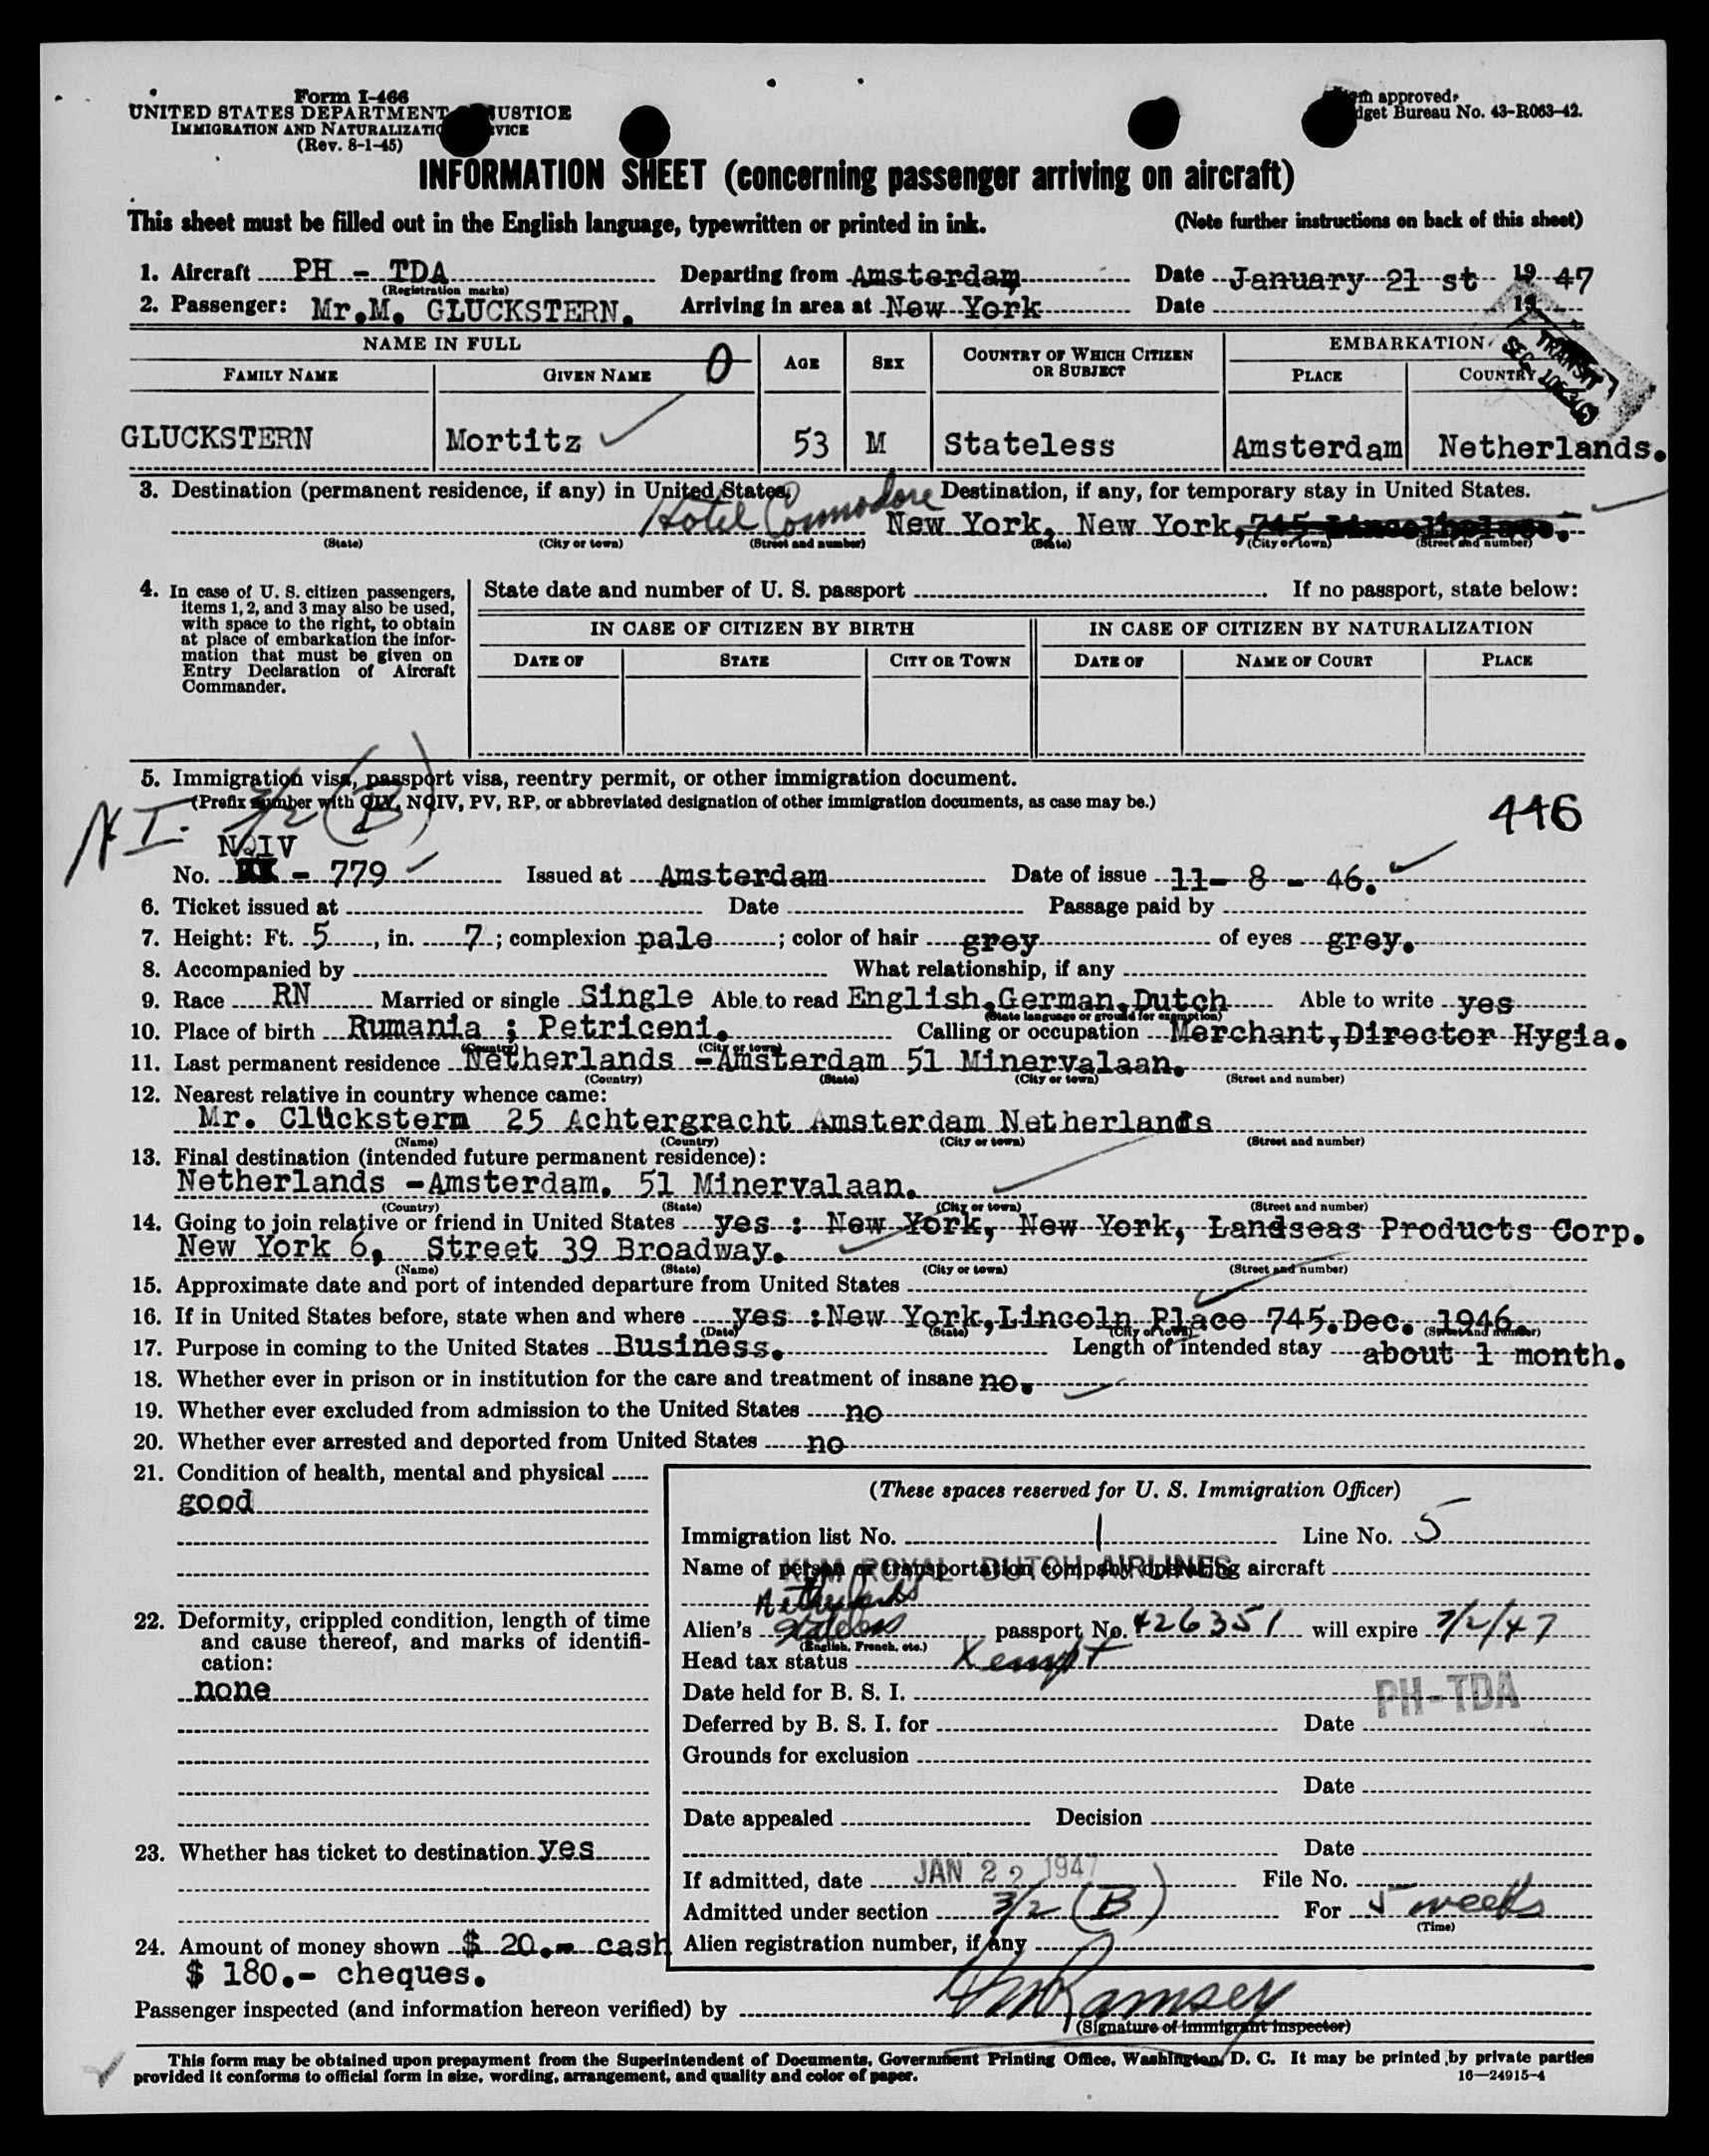 Form I-466
UNITED STATES DEPARTMENT JUSTICE
IMMIGRATION AND NATURALIZATI VICE
(Rev. 8-1-45)
m approved.
dget Bureau No. 43-R063-42.
INFORMATION SHEET (concerning passenger arriving on aircraft)
This sheet must be filled out in the English language, typewritten or printed in ink. (Note further instructions on back of this sheet)
1. Aircraft PH - TDA Departing from Amsterdam Date January 21 st 19 47
(Registration marks)
2. Passenger: Mr.M. GLUCKSTERN. Arriving in area at New York Date 19
TRANSIT
SEC
NAME IN FULL 0 AGE SEX COUNTRY OF WHICH CITIZEN OR SUBJECT EMBARKATION
FAMILY NAME GIVEN NAME PLACE COUNTRY
GLUCKSTERN Mortitz 53 M Stateless Amsterdam Netherlands.
3. Destination (permanent residence, if any) in United States. Destination, if any, for temporary stay in United States.
Hotel Commodore New York, New York, 745
(State) (City or town) (Street and number) (State) (City or town) (Street and number)
4. In case of U. S. citizen passengers, items 1, 2, and 3 may also be used, with space to the right, to obtain at place of embarkation the information that must be given on Entry Declaration of Aircraft Commander.
State date and number of U. S. passport If no passport, state below:
IN CASE OF CITIZEN BY BIRTH IN CASE OF CITIZEN BY NATURALIZATION
DATE OF STATE CITY OR TOWN DATE OF NAME OF COURT PLACE
5. Immigration visa, passport visa, reentry permit, or other immigration document.
(Prefix number with QIV, NQIV, PV, RP, or abbreviated designation of other immigration documents, as case may be.)
N I. 3/2 (B) 446
NQIV
No. - 779 Issued at Amsterdam Date of issue 11- 8 - 46.
6. Ticket issued at Date Passage paid by
7. Height: Ft. 5, in. 7; complexion pale; color of hair grey of eyes grey.
8. Accompanied by What relationship, if any
9. Race RN Married or single Single Able to read English,German,Dutch Able to write yes
(State language or ground for exemption)
10. Place of birth Rumania ; Petriceni. Calling or occupation Merchant,Director Hygia.
(Country) (City or town)
11. Last permanent residence Netherlands -Amsterdam 51 Minervalaan.
(Country) (State) (City or town) (Street and number)
12. Nearest relative in country whence came:
Mr. Clückstern 25 Achtergracht Amsterdam Netherlands
(Name) (Country) (City or town) (Street and number)
13. Final destination (intended future permanent residence):
Netherlands -Amsterdam. 51 Minervalaan.
(Country) (State) (City or town) (Street and number)
14. Going to join relative or friend in United States yes : New York, New York, Landseas Products Corp.
New York 6, Street 39 Broadway.
(Name) (State) (City or town) (Street and number)
15. Approximate date and port of intended departure from United States
16. If in United States before, state when and where yes :New York,Lincoln Place 745.Dec. 1946.
(Date) (State) (City or town) (Street and number)
17. Purpose in coming to the United States Business. Length of intended stay about 1 month.
18. Whether ever in prison or in institution for the care and treatment of insane no.
19. Whether ever excluded from admission to the United States no
20. Whether ever arrested and deported from United States no
21. Condition of health, mental and physical
good
22. Deformity, crippled condition, length of time and cause thereof, and marks of identification:
none
23. Whether has ticket to destination yes
24. Amount of money shown $ 20.- cash
$ 180.- cheques.
(These spaces reserved for U. S. Immigration Officer)
Immigration list No. 1 Line No. 5
Name of person or transportation company operating aircraft
KLM ROYAL DUTCH AIRLINES
Netherlands
Alien's Stateless passport No. 426351 will expire 7/2/47
(English, French, etc.)
Head tax status Xempt
Date held for B. S. I.
PH-TDA
Deferred by B. S. I. for Date
Grounds for exclusion
Date
Date appealed Decision
Date
If admitted, date JAN 22 1947 File No.
Admitted under section 3/2 (B) For 5 weeks
(Time)
Alien registration number, if any
Passenger inspected (and information hereon verified) by Ramsey
(Signature of immigrant inspector)
This form may be obtained upon prepayment from the Superintendent of Documents, Government Printing Office, Washington, D. C. It may be printed by private parties
provided it conforms to official form in size, wording, arrangement, and quality and color of paper. 16—24915-4